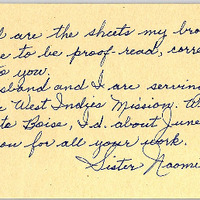 l are the sheets my bro
e to be proof-read, corre
to you.
usband and I are serving
e West Indies Mission. W
to Boise, I'd. about June
ou for all your work.
Sister Naomi